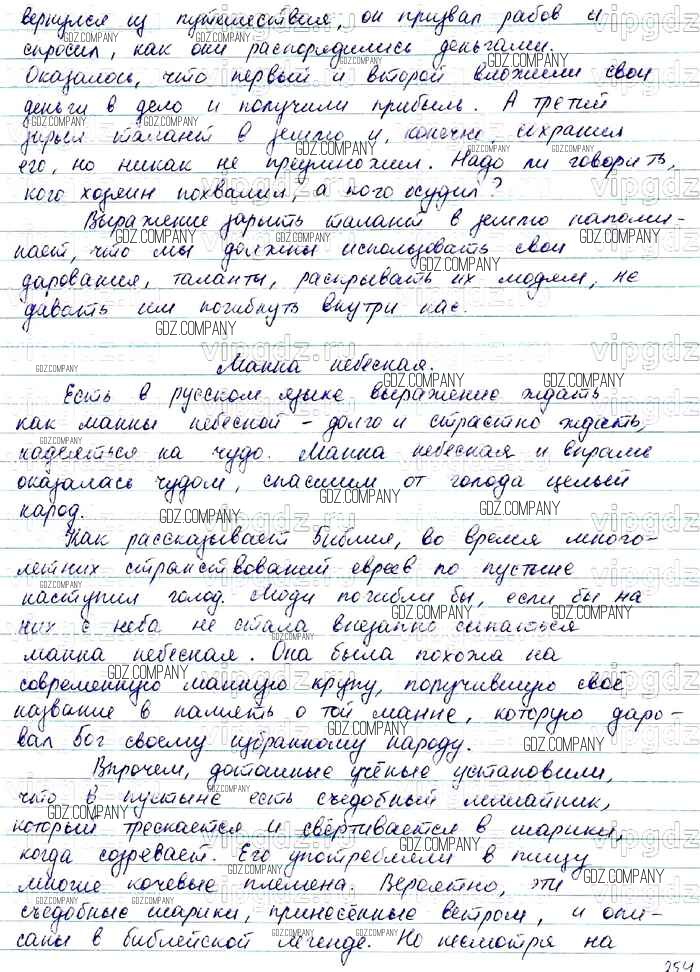 вернулся из путешествия, он призвал рабов и
спросил, как они распорядились деньгами.
Оказалось, что первый и второй вложили свои
деньги в дело и получили прибыль. А третий
зарыл талант в землю и, конечно, сохранил
его, но никак не преумножил. Надо ли говорить,
кого хозяин похвалил, а кого осудил?
Выражение зарыть талант в землю напоми-
нает, что мы должны использовать свои
дарования, таланты, раскрывать их людям, не
давать им погибнуть внутри нас.
Манна небесная.
Есть в русском языке выражение ждать
как манны небесной – долго и страстно ждать,
надеяться на чудо. Манна небесная и вправе
оказалась чудом, спасшим от голода целый
народ.
Как рассказывает Библия, во время много-
летних странствований евреев по пустыне
наступил голод. Люди погибли бы, если бы на
них с неба не стала внезапно сыпаться
манна небесная. Она была похожа на
современную манную крупу, получившую своё
название в память о той манне, которую даро-
вал Бог своему избранному народу.
Впрочем, дотошные учёные установили,
что в пустыне есть съедобный лишайник,
который трескается и свёртывается в шарики,
когда созревает. Его употребляли в пищу
многие кочевые племена. Вероятно, эти
съедобные шарики, принесённые ветром, и опи-
саны в библейской легенде. Но несмотря на
254